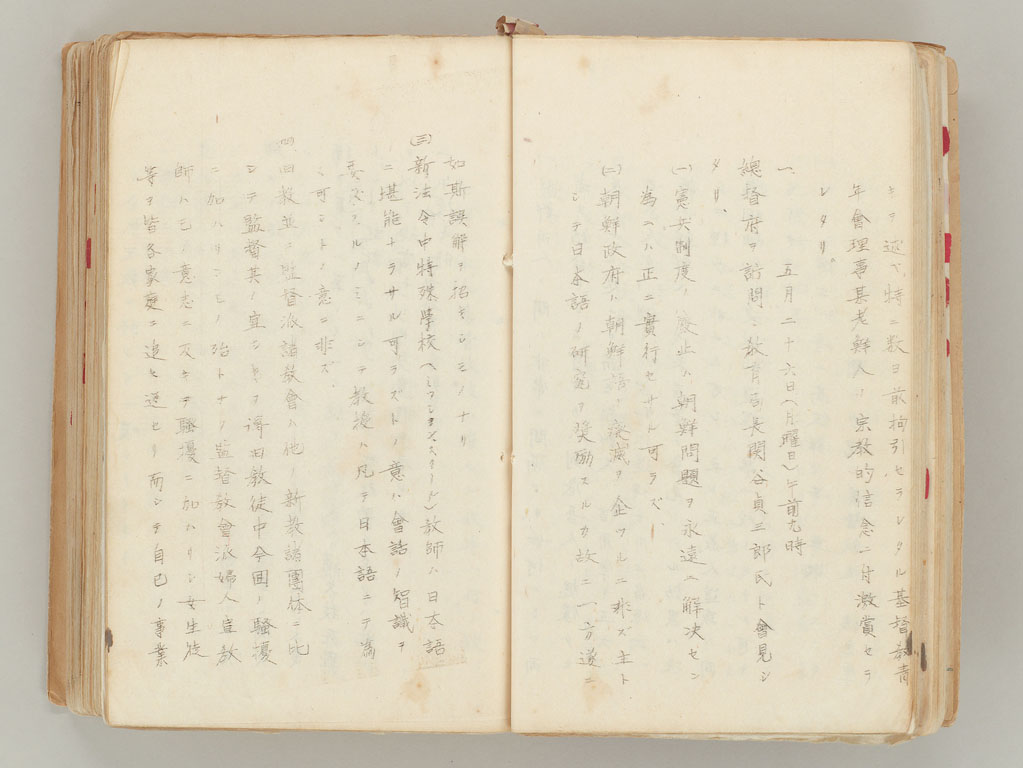 キヲ述ベ特ニ数日前拘引セラレタル基督教青
年會理事某老鮮人ノ宗教的信念ニ付激賞セラ
レタリ。
一、五月二十六日(月曜日)午前九時
總督府ヲ訪問シ教育局長関谷貞三郎氏ト會見シ
タリ、
(一)憲兵制度ノ廃止ハ朝鮮問題ヲ永遠ニ解決セン
為ニハ正ニ實行セサル可ラズ、
(二)朝鮮政府ハ朝鮮語ノ衰滅ヲ企ツルニ非ズ主ト
シテ日本語ノ研究ヲ奨励スルカ故ニ一方遂ニ
如斯誤解ヲ招キシモノナリ
(三)新法令中特殊學校 教師ハ日本語
ニ堪能ナラサル可ラズトノ意ハ會話ノ智識ヲ
要スルノミニシテ教授ハ凡テ日本語ニテ為
ス可シトノ意ニ非ズ
(四)田教並ニ監督派諸教會ハ他ノ新教諸團体ニ比
シテ監督其ノ宜シキヲ得田教徒中今回ノ騒擾
ニ加ハリシモノ殆トナク監督教會派婦人宣教
師ハ己ノ意志ニ反キテ騒擾ニ加ハリシ女生徒
等ヲ皆各家庭ニ追ヒ還セリ而シテ自己ノ事業